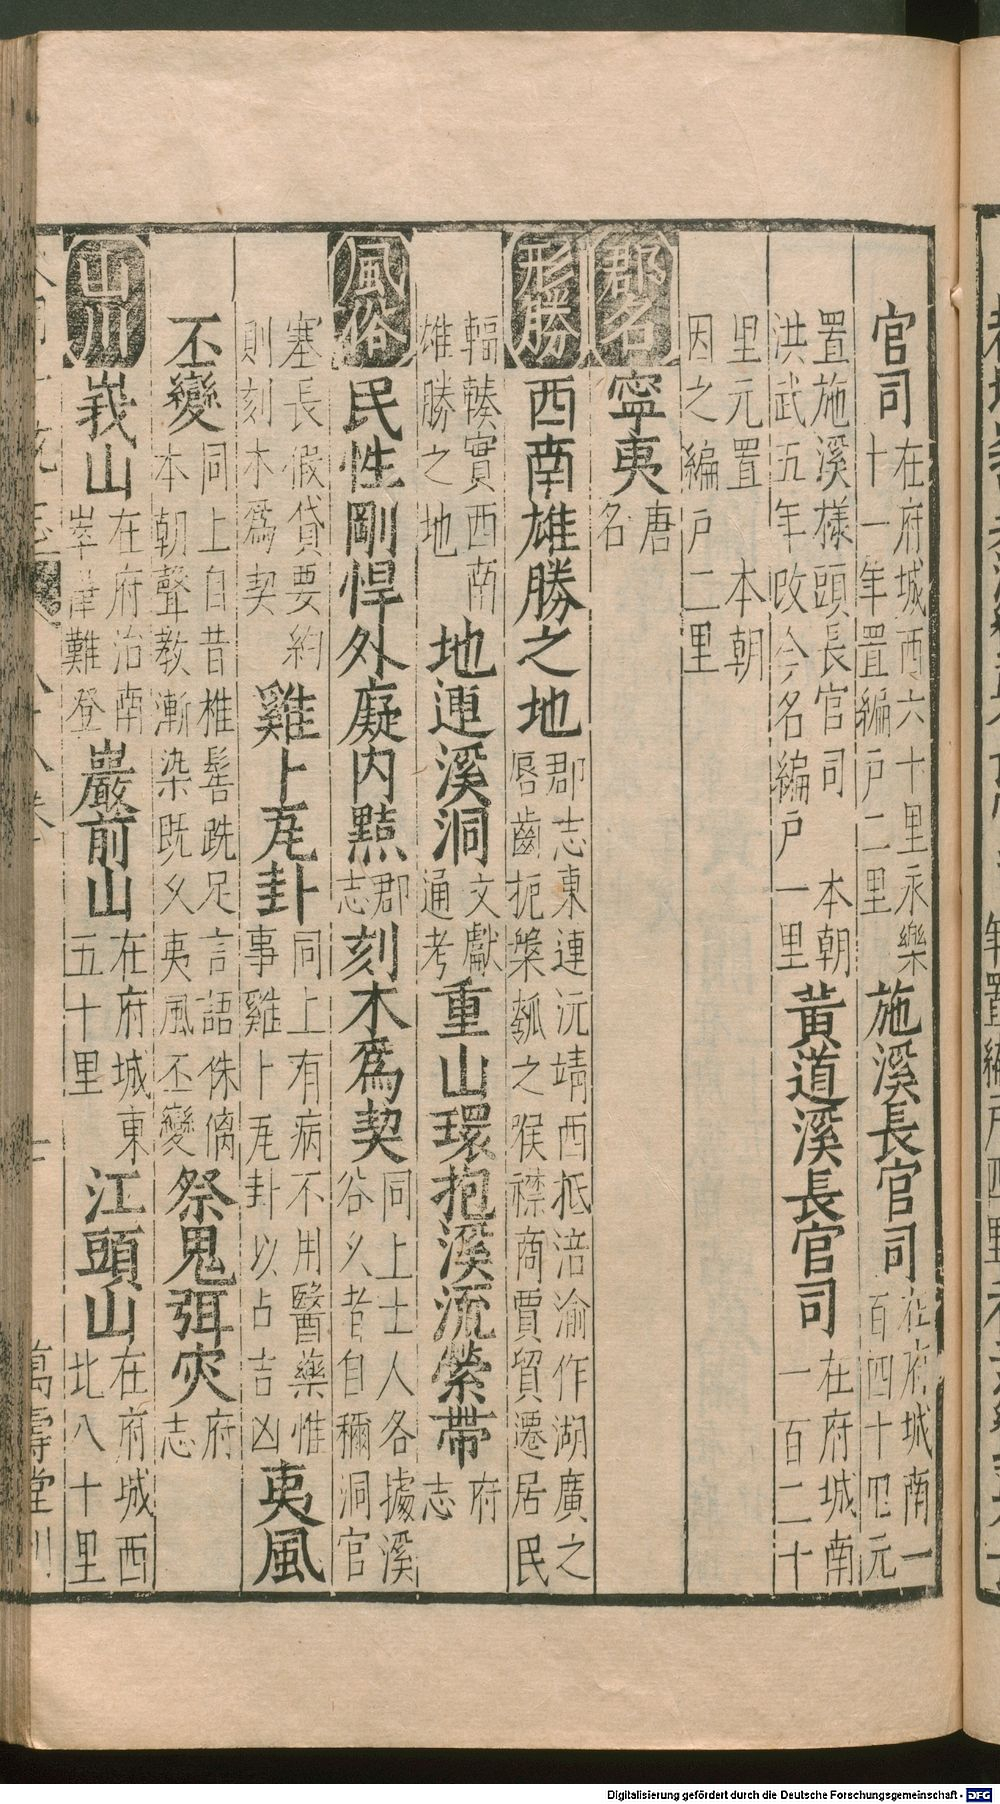 官司在府城西六十里永樂十一年置編戶二里施溪長官司在府城南一百四十里元
置施溪樣頭長官司本朝洪武五年改今名編戶一里黃道溪長官司在府城南一百二十
里元置本朝因之編戶二里
郡名寧夷唐名
形勝西南雄勝之地郡志東連沅靖西抵涪渝作湖廣之唇齒扼槃瓠之猴襟商賈貿遷居民
輻輳實西南雄勝之地地連溪洞文獻通考重山環抱溪流縈帶府志
風俗民性剛悍外癡內黠郡志刻木爲契同上士人各據溪谷乆者自稱洞官
塞長假貸要約則刻木爲契雞卜瓦卦同上有病不用醫藥惟事雞卜瓦卦以占吉凶夷風
丕變同上自昔椎髻跣足言語侏㒧本朝聲教漸染既乆夷風丕變祭鬼弭灾府志
山川峩山在府治南崒嵂難登巖前山在府城東五十里江頭山在府城西北八十里
萬壽堂刊
Digitalisierung gefördert durch die Deutsche Forschungsgemeinschaft - DFG